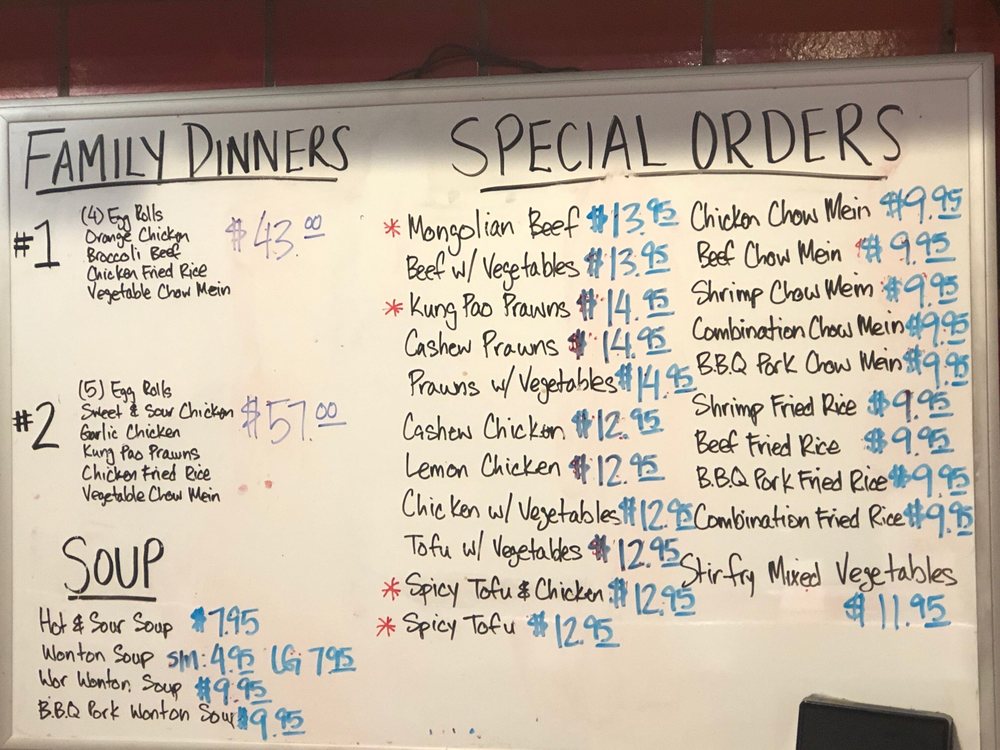 FAMILY DINNERS
#1
(4) Egg Rolls
Orange Chicken
Broccoli Beef
Chicken Fried Rice
Vegetable Chow Mein
$43.00
#2
(5) Egg Rolls
Sweet & Sour Chicken
Garlic Chicken
Kung Pao Prawns
Chicken Fried Rice
Vegetable Chow Mein
$57.00
SOUP
Hot & Sour Soup $7.95
Wonton Soup SM: 4.95 LG 7.95
Wor Wonton Soup $9.95
B.B.Q Pork Wonton Soup $9.95
SPECIAL ORDERS
* Mongolian Beef $13.95
Beef w/ Vegetables $13.95
* Kung Pao Prawns $14.95
Cashew Prawns $14.95
Prawns w/ Vegetables $14.95
Cashew Chicken $12.95
Lemon Chicken $12.95
Chicken w/ Vegetables $12.95
Tofu w/ Vegetables $12.95
* Spicy Tofu & Chicken $12.95
* Spicy Tofu $12.95
Chicken Chow Mein $9.95
Beef Chow Mein $9.95
Shrimp Chow Mein $9.95
Combination Chow Mein $9.95
B.B.Q Pork Chow Mein $9.95
Shrimp Fried Rice $9.95
Beef Fried Rice $9.95
B.B.Q Pork Fried Rice $9.95
Combination Fried Rice $9.95
Stirfry Mixed Vegetables
$11.95